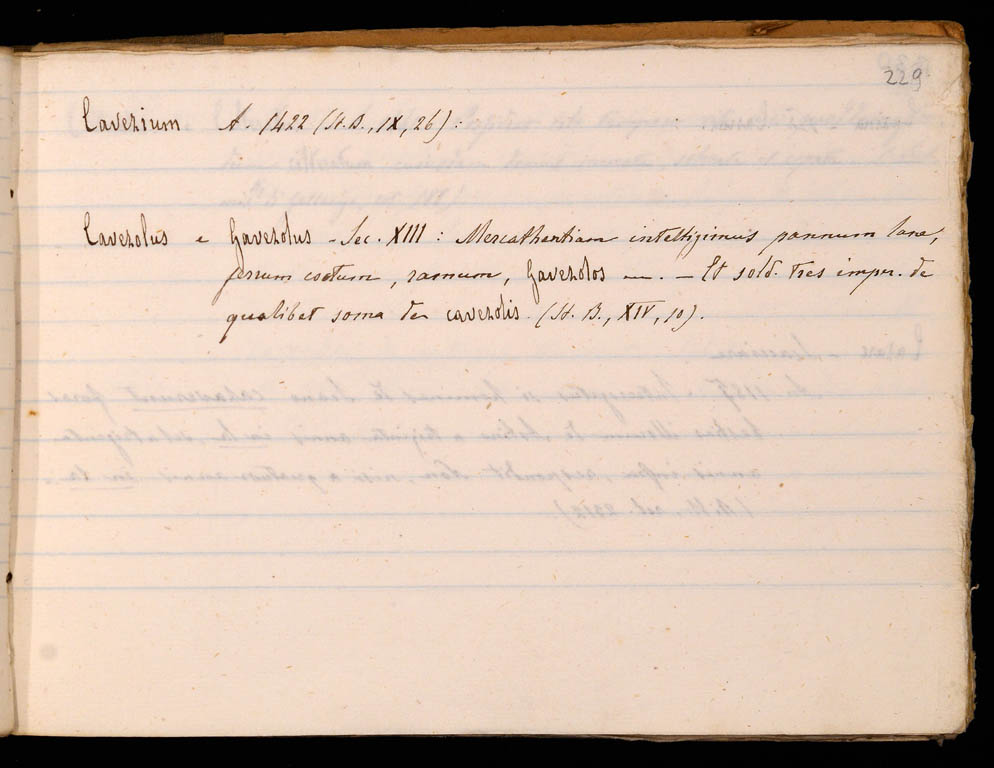 229
Cavezium A. 1422 (St. B., IX, 26) :
Cavezolus e Gavezolus - Sec. XIII : Mercathantiam intelligimus, pannum lane,
ferrum coctum, ramum, Gavezolos —. — Et sold. tres imper. de
qualibet soma de cavezolis. (St. B., XIV, 10).